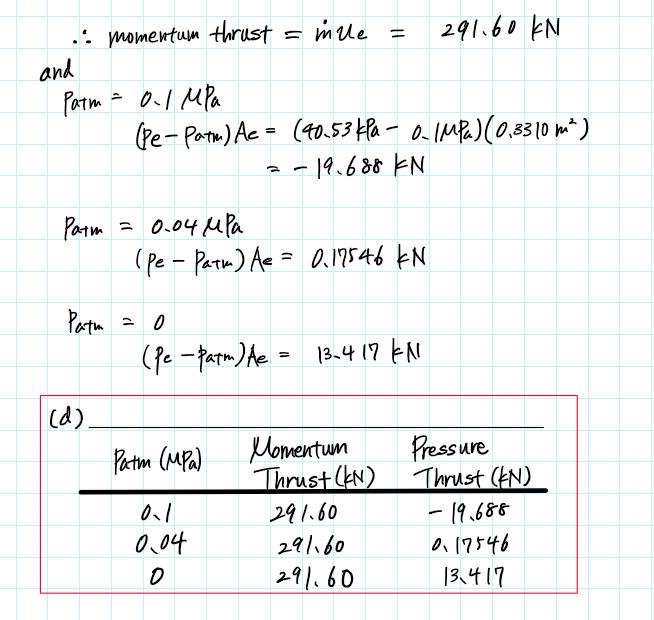 ∴ momentum thrust = ṁue = 291.60 kN
and
Patm = 0.1 MPa
(Pe - Patm) Ae = (40.53 kPa - 0.1MPa)(0.3310 m²)
= - 19.688 kN
Patm = 0.04 MPa
(Pe - Patm) Ae = 0.17546 kN
Patm = 0
(Pe - Patm) Ae = 13.417 kN
(d)
Patm (MPa) Momentum Thrust (kN) Pressure Thrust (kN)
0.1 291.60 - 19.688
0.04 291.60 0.17546
0 291.60 13.417